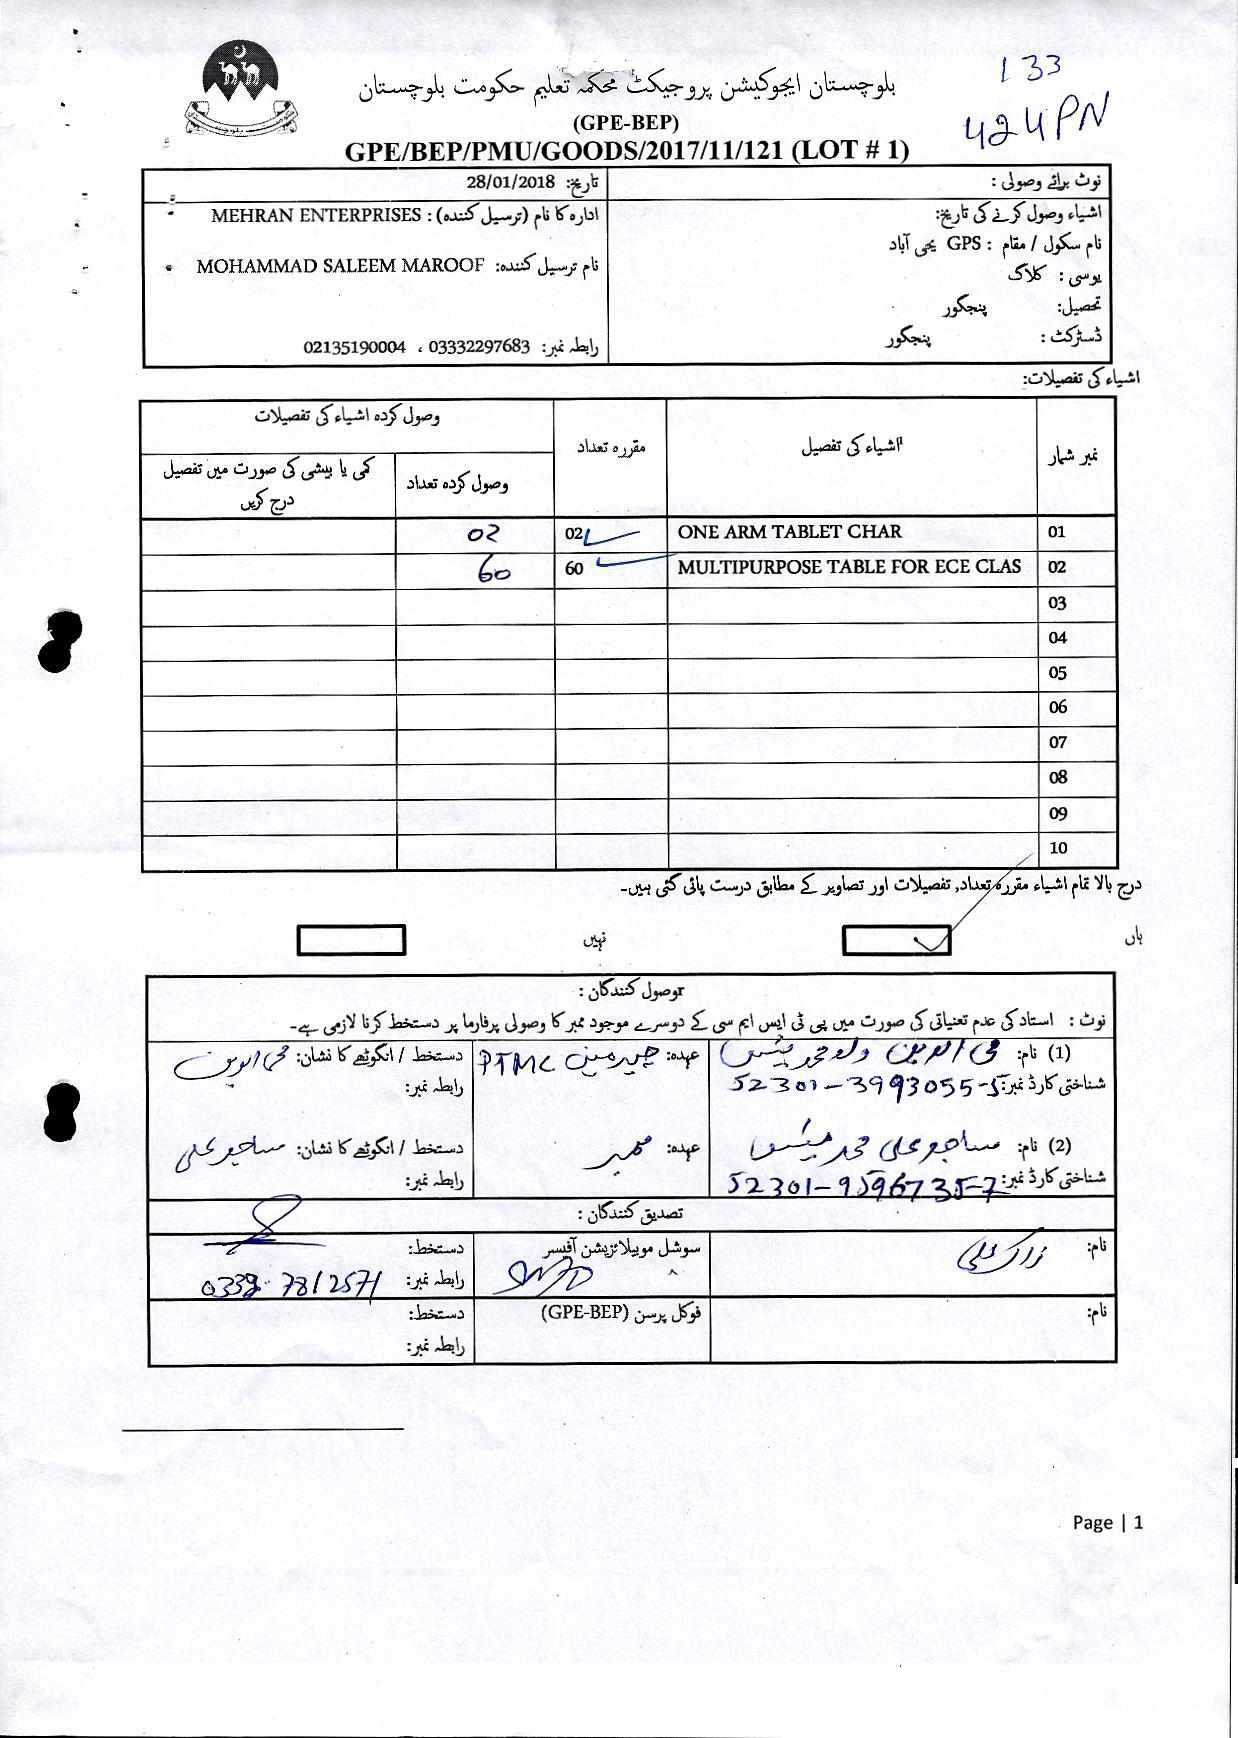 133
424PN
بلوچستان ایجوکیشن پروجیکٹ محکمہ تعلیم حکومت بلوچستان
(GPE-BEP)
GPE/BEP/PMU/GOODS/2017/11/121 (LOT # 1)
نوٹ برائے وصولی :
تاریخ: 28/01/2018
اشیاء وصول کرنے کی تاریخ:
نام سکول / مقام : GPS یحی آباد
یوسی : کلاگ
تحصیل: پنجگور
ڈسٹرکٹ : پنجگور
ادارہ کا نام (ترسیل کنندہ) : MEHRAN ENTERPRISES
نام ترسیل کنندہ: MOHAMMAD SALEEM MAROOF
رابطہ نمبر: 03332297683 ، 02135190004
اشیاء کی تفصیلات:
نمبر شمار اشیاء کی تفصیل مقررہ تعداد وصول کردہ اشیاء کی تفصیلات
وصول کردہ تعداد کمی یا بیشی کی صورت میں تفصیل درج کریں
01 ONE ARM TABLET CHAR 02 02
02 MULTIPURPOSE TABLE FOR ECE CLAS 60 60
03
04
05
06
07
08
09
10
درج بالا تمام اشیاء مقررہ تعداد, تفصیلات اور تصاویر کے مطابق درست پائی گئی ہیں۔
ہاں نہیں
وصول کنندگان :
نوٹ : استاد کی عدم تعنیاتی کی صورت میں پی ٹی ایس ایم سی کے دوسرے موجود ممبر کا وصولی پرفارما پر دستخط کرنا لازمی ہے۔
(1) نام: محی الدین ولد محمد عہدہ: چیرمین PTMC دستخط / انگوٹھے کا نشان: محی الدین
شناختی کارڈ نمبر: 52301-3993055-5 رابطہ نمبر:
(2) نام: ساجد علی محمد عہدہ: ممبر دستخط / انگوٹھے کا نشان: ساجد علی
شناختی کارڈ نمبر: 52301-9596735-7 رابطہ نمبر:
تصدیق کنندگان :
نام: سوشل موبیلائزیشن آفیسر دستخط:
رابطہ نمبر: 0338-7812571
نام: فوکل پرسن (GPE-BEP) دستخط:
رابطہ نمبر:
Page | 1